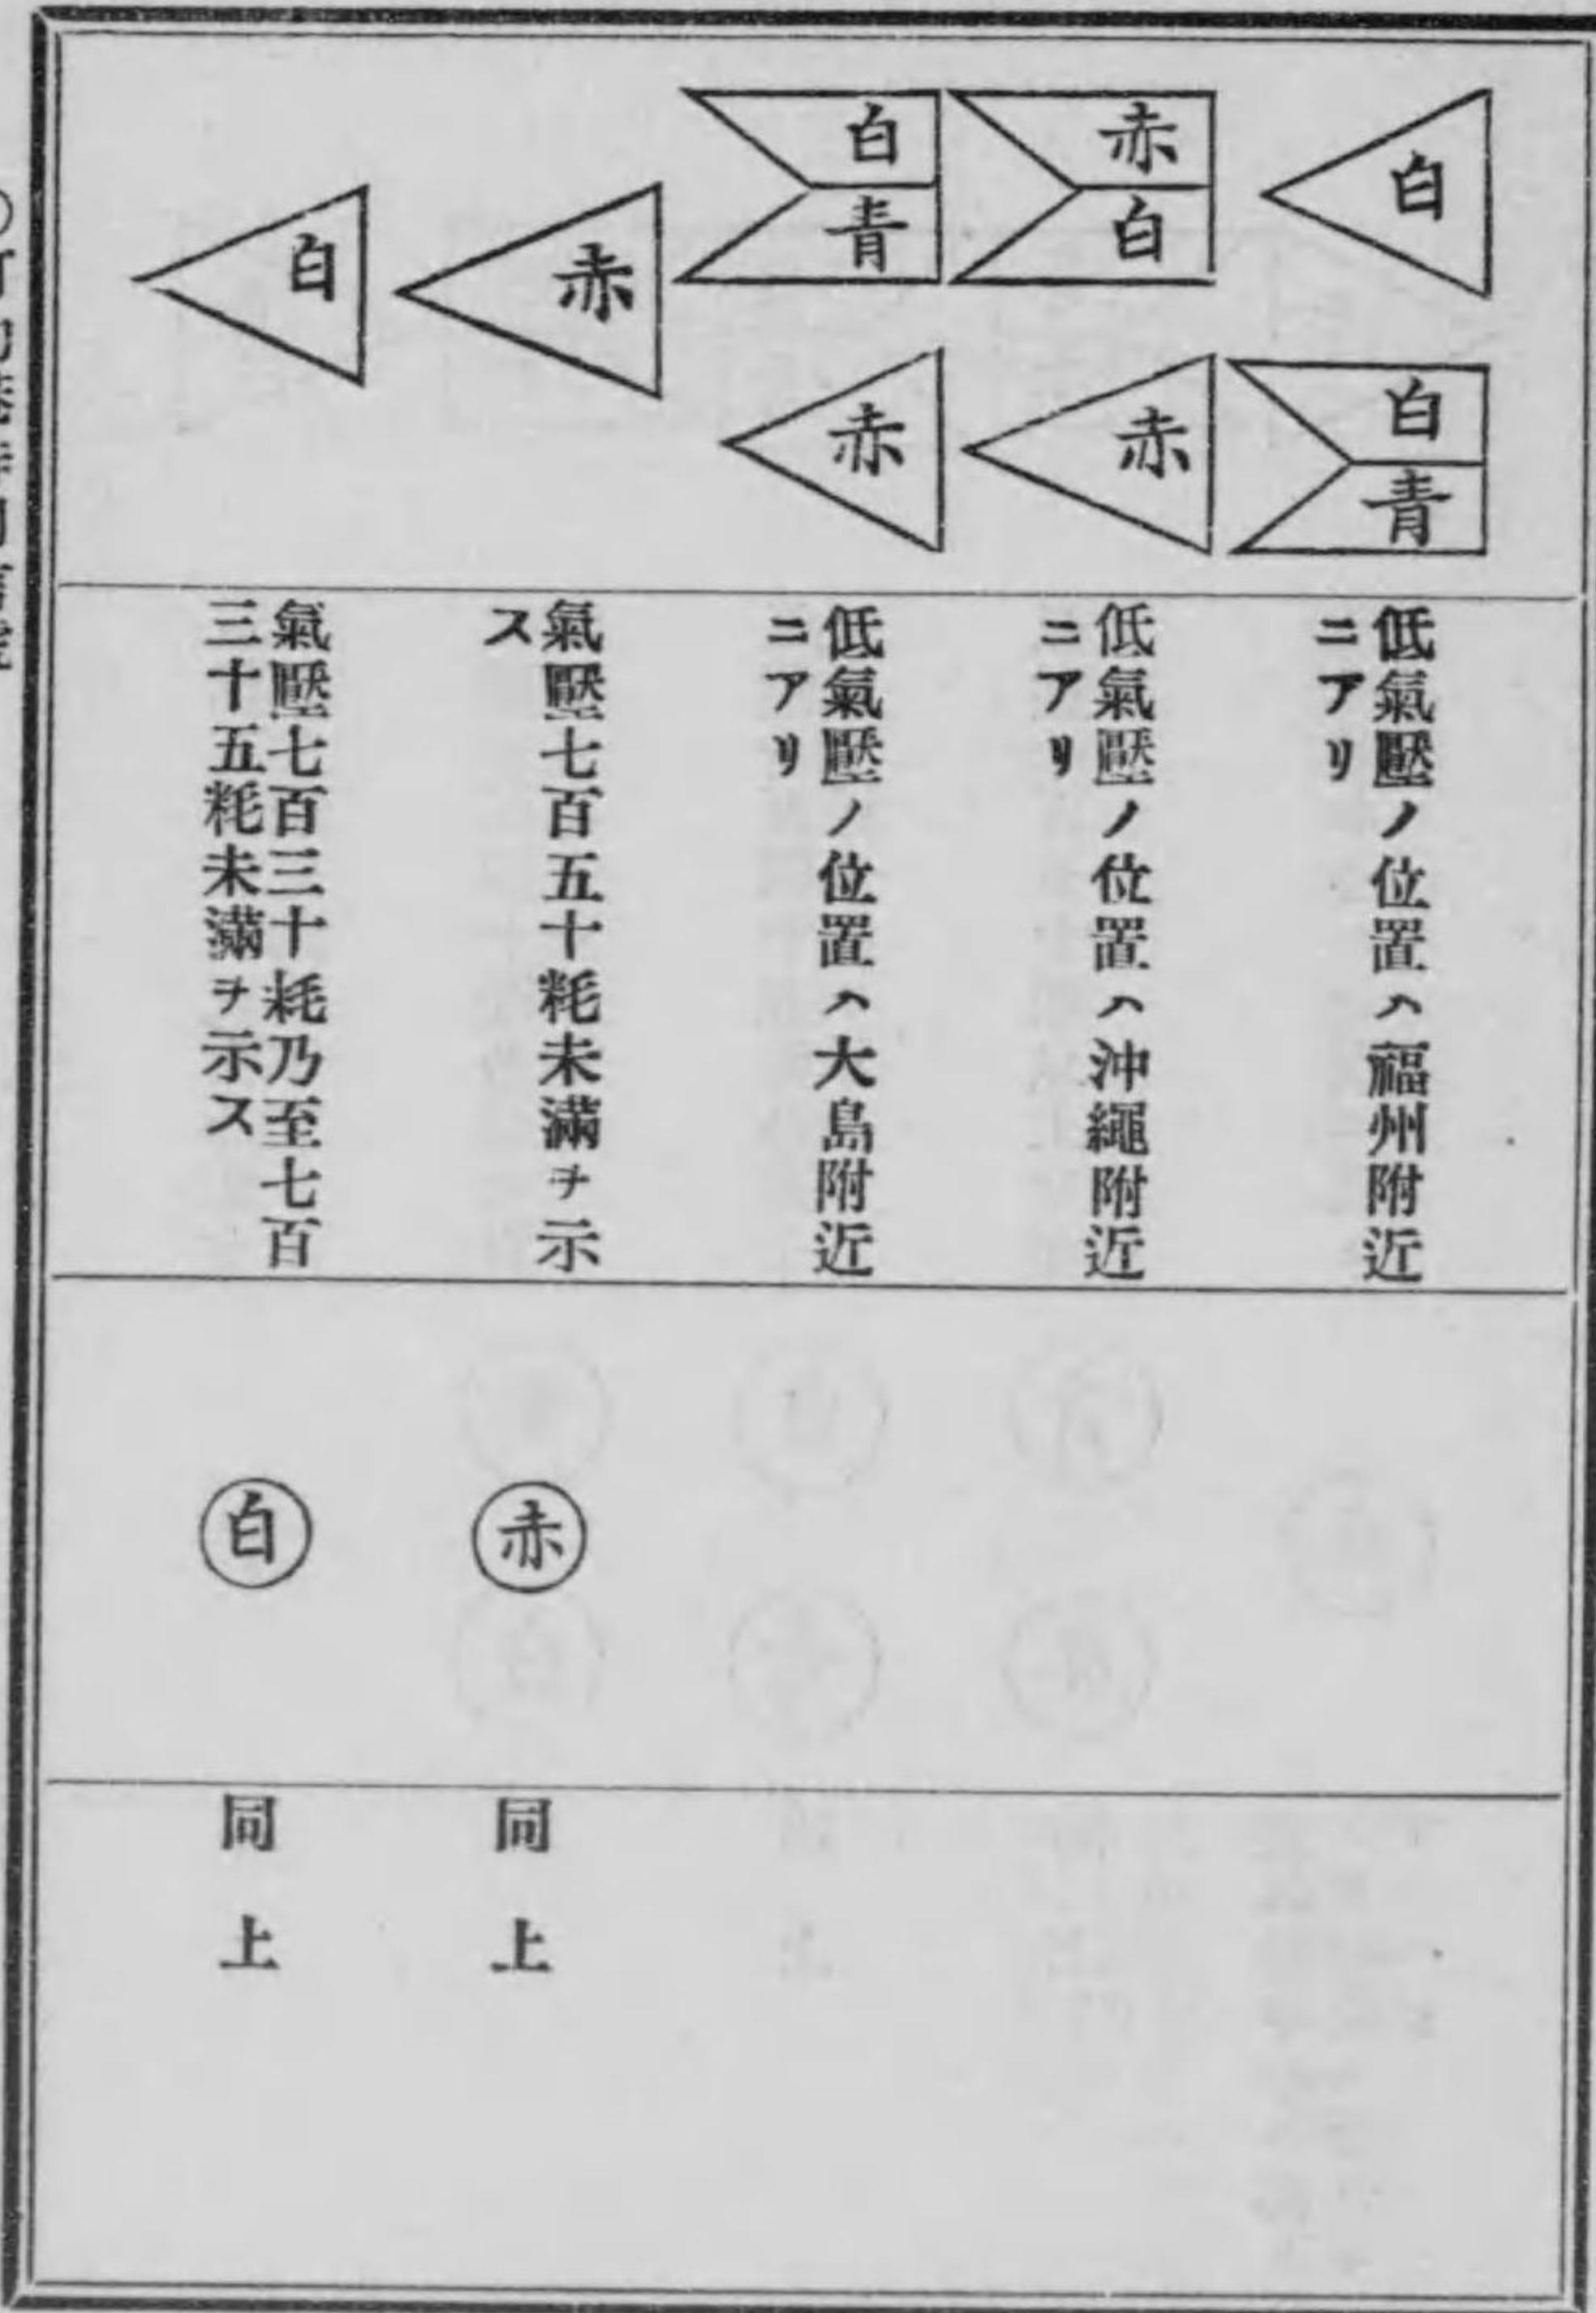 白
白
青
低氣壓ノ位置ハ福州附近
ニアリ
赤
白
赤
低氣壓ノ位置ハ沖繩附近
ニアリ
白
青
赤
低氣壓ノ位置ハ大島附近
ニアリ
赤
氣壓七百五十粍未滿ヲ示
ス
赤
同上
白
氣壓七百三十粍乃至七百
三十五粍未滿ヲ示ス
白
同上